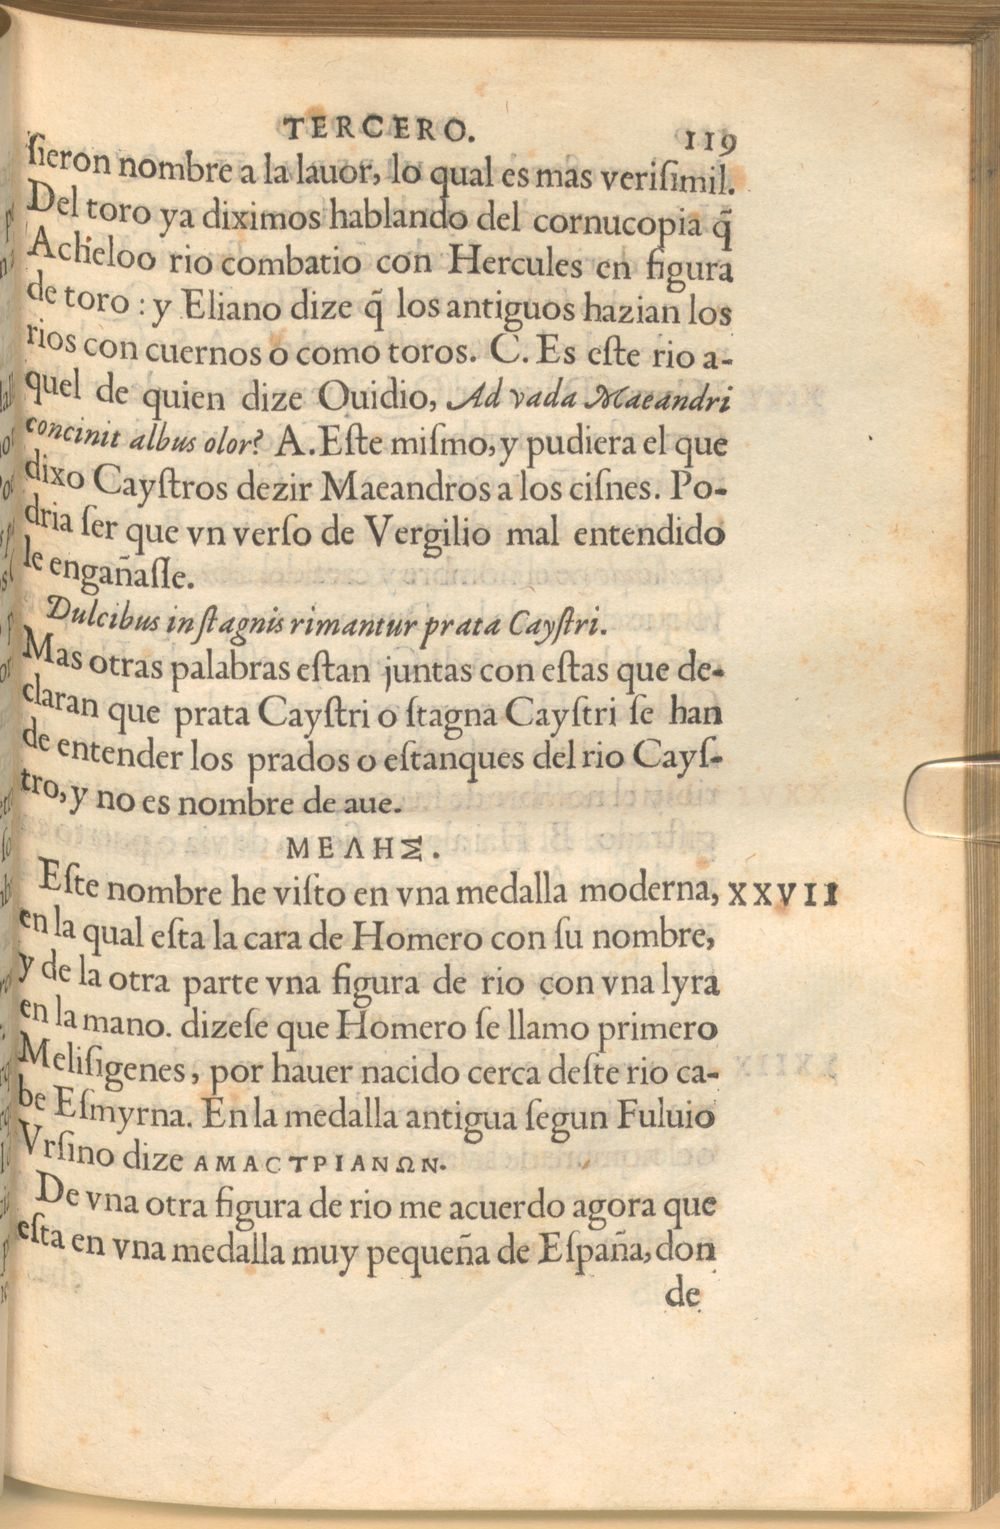 TERCERO. 119
ſieron nombre a la lauor, lo qual es mas veriſimil.
Del toro ya diximos hablando del cornucopia q̃
Acheloo rio combatio con Hercules en figura
de toro : y Eliano dize q̃ los antiguos hazian los
rios con cuernos o como toros. C. Es eſte rio a-
quel de quien dize Ouidio, Ad vada Maeandri
concinit albus olor? A. Eſte miſmo, y pudiera el que
dixo Cayſtros dezir Maeandros a los ciſnes. Po-
dria ſer que vn verſo de Vergilio mal entendido
le engañaſſe.
Dulcibus in ſtagnis rimantur prata Cayſtri.
Mas otras palabras eſtan juntas con eſtas que de-
claran que prata Cayſtri o ſtagna Cayſtri ſe han
de entender los prados o eſtanques del rio Cayſ-
tro, y no es nombre de aue.
ΜΕΛΗΣ.
Eſte nombre he viſto en vna medalla moderna, XXVII
en la qual eſta la cara de Homero con ſu nombre,
y de la otra parte vna figura de rio con vna lyra
en la mano. dizeſe que Homero ſe llamo primero
Meliſigenes, por hauer nacido cerca deſte rio ca-
be Eſmyrna. En la medalla antigua ſegun Fuluio
Vrſino dize ΑΜΑCΤΡΙΑΝΩΝ.
De vna otra figura de rio me acuerdo agora que
eſta en vna medalla muy pequeña de Eſpaña, don
de